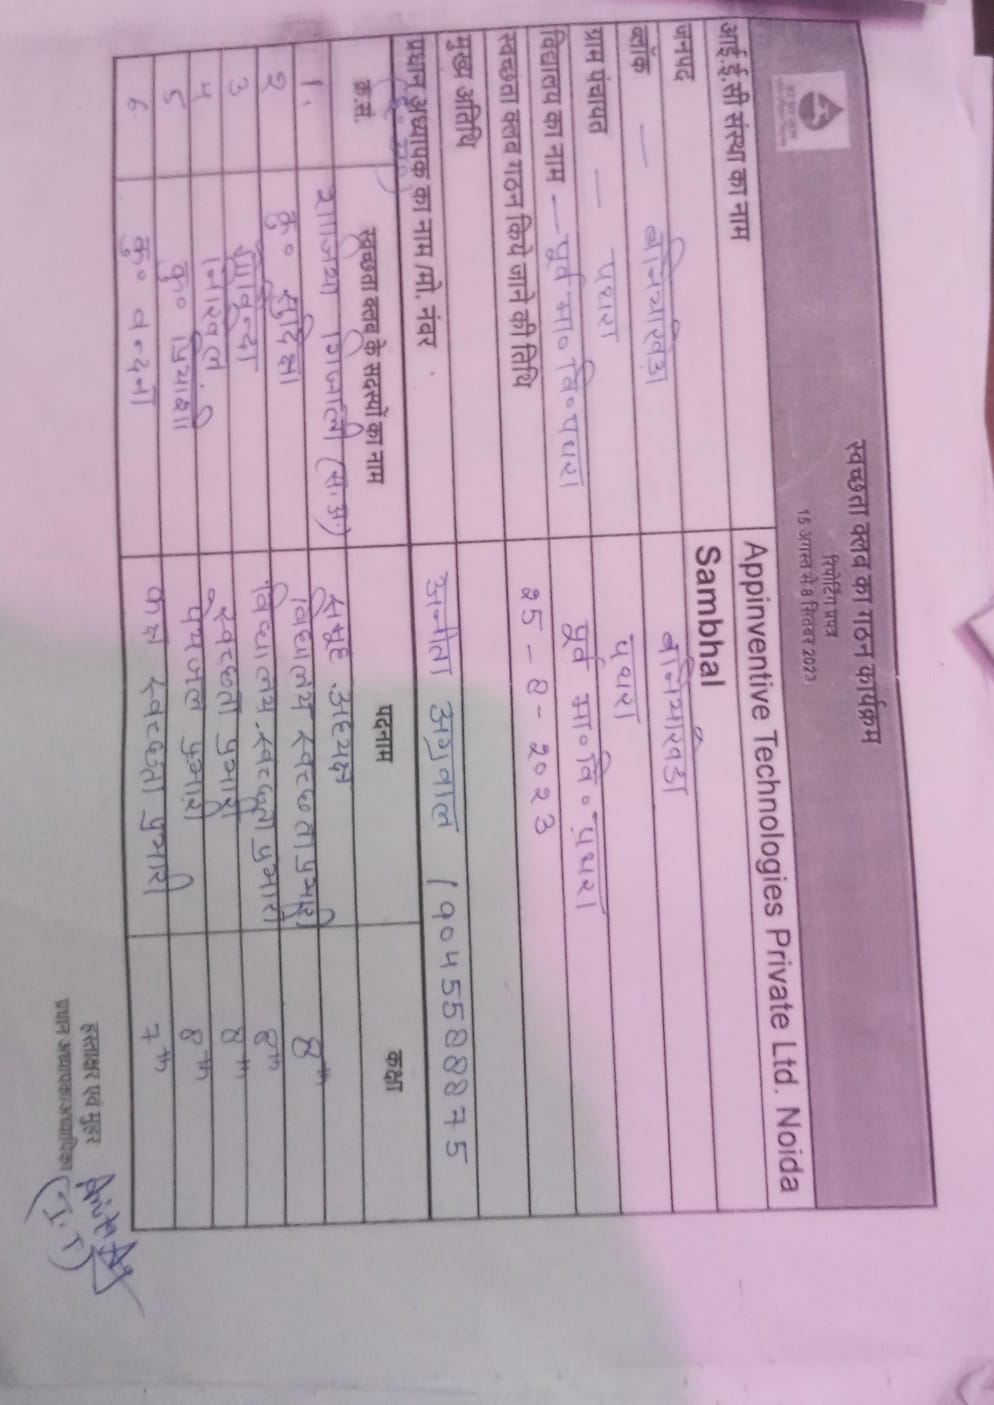 स्वच्छता क्लब का गठन कार्यक्रम
रिपोर्टिंग प्रपत्र
15 अगस्त से 8 सितंबर 2023
आई.ई.सी संस्था का नाम Appinventive Technologies Private Ltd. Noida
जनपद Sambhal
ब्लॉक — बनियाखेडा बनियाखेडा
ग्राम पंचायत — पथरा पथरा
विद्यालय का नाम — पूर्व मा० वि० पथरा पूर्व मा० वि० पथरा
स्वच्छता क्लब गठन किये जाने की तिथि 25 - 8 - 2023
मुख्य अतिथि
प्रधान अध्यापक का नाम /मो. नंबर अनीता अग्रवाल / 9045588875
क्र.सं. स्वच्छता क्लब के सदस्यों का नाम पदनाम कक्षा
1. (स.अ.) समूह अध्यक्ष
२ कु० विद्यालय स्वच्छता प्रभारी 8th
३ विद्यालय स्वच्छता प्रभारी 8th
४ स्वच्छता प्रभारी 8th
५ कु० पेयजल प्रभारी 8th
६ कु० वन्दना कक्षा स्वच्छता प्रभारी 7th
हस्ताक्षर एवं मुहर
प्रधान अध्यापक/अध्यापिका